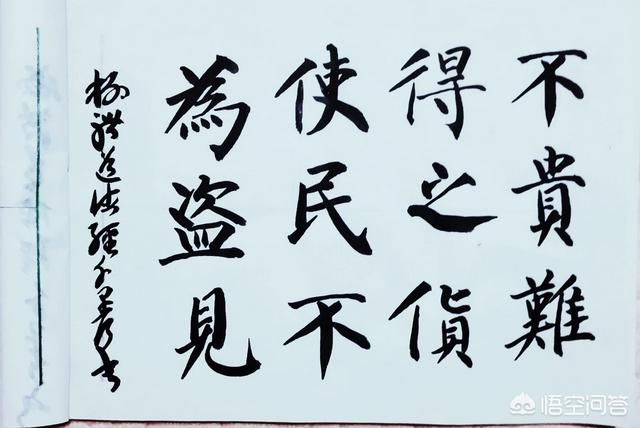 不貴難
得之貨
使民不
為盜見
道德經
悟空问答